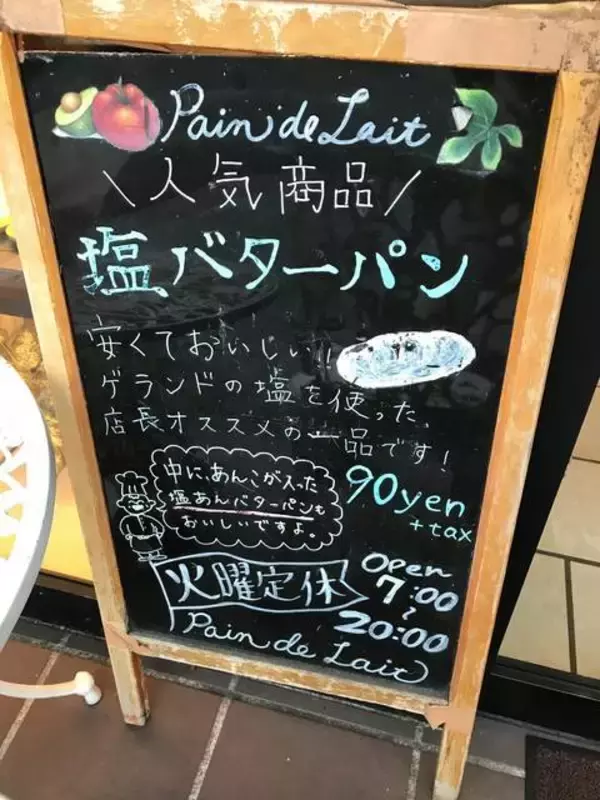 Pain de Lait
\人気商品/
塩バターパン
安くておいしい!!
ゲランドの塩を使った、
店長オススメの一品です!
中に、あんこが入った
塩あんバターパンも
おいしいですよ。
90yen
+tax
火曜定休
OPen
7:00
~
20:00
Pain de Lait